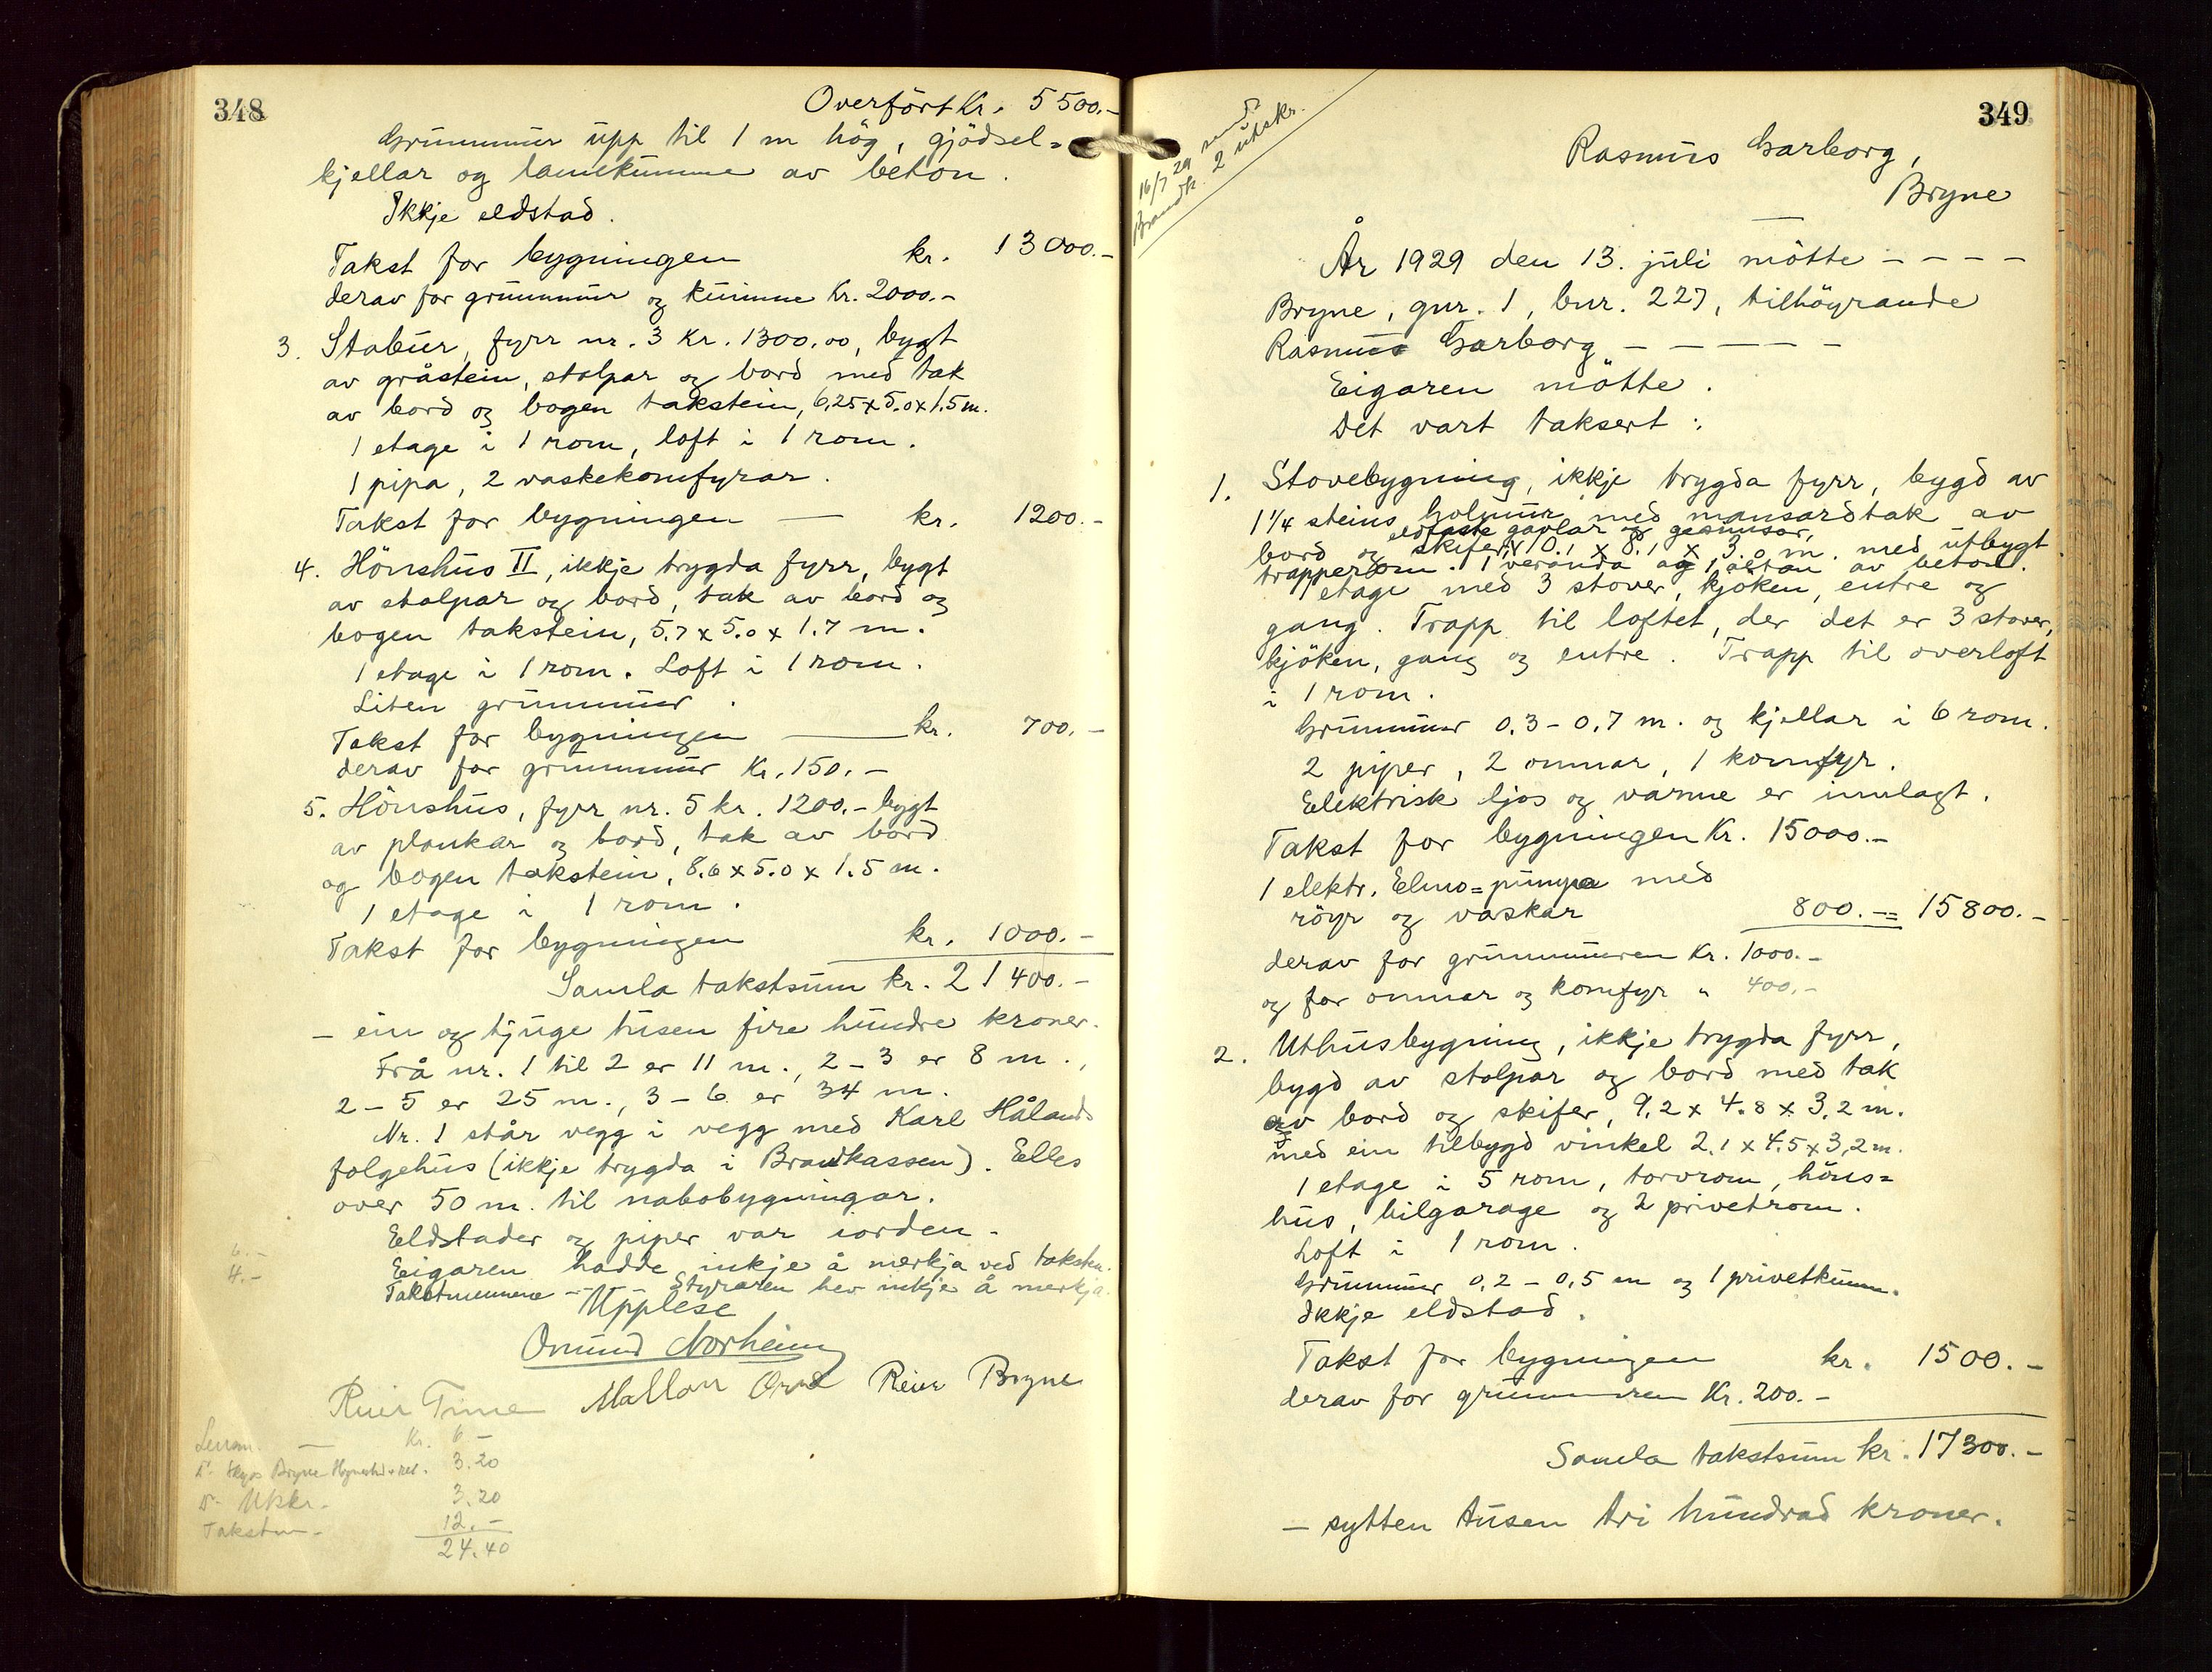 348
Overfört Kr. 5500.-
Grunnmur upp til 1 m hög, gjödsel=
kjellar og lannekumme av beton.
Ikkje eldstad.
Takst for bygningen kr. 13000.-
derav for grunnmur og kumme Kr. 2000.-
3. Stabur, fyrr nr. 3 Kr. 1300.00, bygt
av gråstein, stolpar og bord med tak
av bord og bogen takstein, 6,25 x 5.0 x 1.5 m.
1 etage i 1 rom, loft i 1 rom.
1 pipa, 2 vaskekomfyrar.
Takst for bygningen — kr. 1200.-
4. Hönshus II, ikkje trygda fyrr, bygt
av stolpar og bord, tak av bord og
bogen takstein, 5.7 x 5.0 x 1.7 m.
1 etage i 1 rom. Loft i 1 rom.
Liten grunnmur.
Takst for bygningen — kr. 700.-
derav for grunnmur Kr. 150.-
5. Hönshus, fyrr nr. 5 kr. 1200.- bygt
av plankar og bord, tak av bord
og bogen takstein, 8.6 x 5.0 x 1.5 m.
1 etage i 1 rom.
Takst for bygningen kr. 1000.-
Samla takstsum kr. 21400.-
- ein og tjuge tusen fire hundre kroner.
Frå nr. 1 til 2 er 11 m., 2-3 er 8 m.,
2-5 er 25 m., 3-6 er 34 m.
Nr. 1 står vegg i vegg med Karl Hålands
folgehus (ikkje trygda i Brandkassen). Elles
over 50 m. til nabobygningar.
Eldstader og piper var iorden.
Eigaren hadde inkje å merkja ved taksten.
Takstmennene - Styraren hev inkje å merkja.
Upplese
Omund Norheim
Reier Time Reier Bryne
Kr. 6 -
3.20
3.20
Takstm- 12.-
24.40
6.-
4.-
349
16/7 29 sendt
Brandk. 2 utskr.
Rasmus Garborg,
Bryne
År 1929 den 13. juli mötte - - - -
Bryne, gnr. 1, bnr. 227, tilhöyrande
Rasmus Garborg - - - - -
Eigaren mötte.
Det vart taksert:
1. Stovebygning, ikkje trygda fyrr, bygd av
1¼ steins holmur med mansardtak av
eldfaste gavlar og gesimsar,
bord og skifer, 10.1 x 8.1 x 3.0 m. med utbygt
trapperom. 1 veranda og 1 altan av beton.
1 etage med 3 stover, kjöken, entre og
gang. Trapp til loftet, der det er 3 stover,
kjöken, gang og entre. Trapp til overloft
i 1 rom.
Grunnmur 0.3 - 0.7 m. og kjellar i 6 rom.
2 piper, 2 omnar, 1 komfyr.
Elektrisk ljos og varme er innlagt.
Takst for bygningen Kr. 15000.-
1 elektr. Elmo=pumpa med
röyr og vaskar 800.- = 15800.-
derav for grunnmuren Kr. 1000.-
og for omnar og komfyr " 400.-
2. Uthusbygning, ikkje trygda fyrr,
bygd av stolpar og bord med tak
av bord og skifer, 9.2 x 4.8 x 3.2 m.
med ein tilbygd vinkel 2.1 x 4.5 x 3,2 m.
1 etage i 5 rom, torvrom, höns=
hus, bilgarage og 2 privetrom.
Loft i 1 rom.
Grunnmur 0.2 - 0.5 m og 1 privetkumm.
Ikkje eldstad.
Takst for bygningen kr. 1500.-
derav for grunnmuren Kr. 200.-
Samla takstsum kr. 17300.-
- sytten tusen tri hundrad kroner.